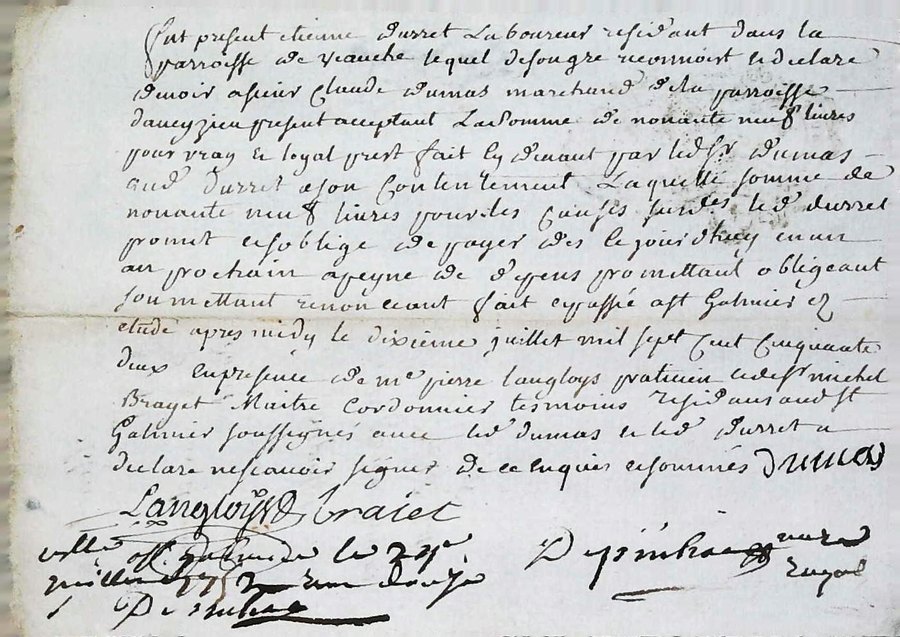 fut present etienne durret Laboureur residant dans la
parroisse de veauche lequel de son gre reconnoist et declare
devoir a sieur Claude dumas marchand de la parroisse
daveyzieu present acceptant La Somme de nonante neuf livres
pour vray et loyal prest fait cy devant par led. sr. dumas
aud. durret a son Contentement Laquelle somme de
nonante neuf livres pour les Causes susd.es led. durret
promet et soblige de payer des ce jourdhuy en un
an prochain a peyne de depens promettant obligeant
soumettant renonceant fait et passé a st Galmier ez
etude apres midy le dixieme juillet mil sept Cent Cinquante
deux en presence de me pierre Langloys praticien et de sr michel
Brayet Maitre Cordonnier tesmoins residans aud. st
Galmier soussignés avec led. dumas et led. durret a
declare ne scavoir signer de ce enquis et sommés Dumas
Langloys braiet
st. Galmier le
juillet 1752
notaire
royal